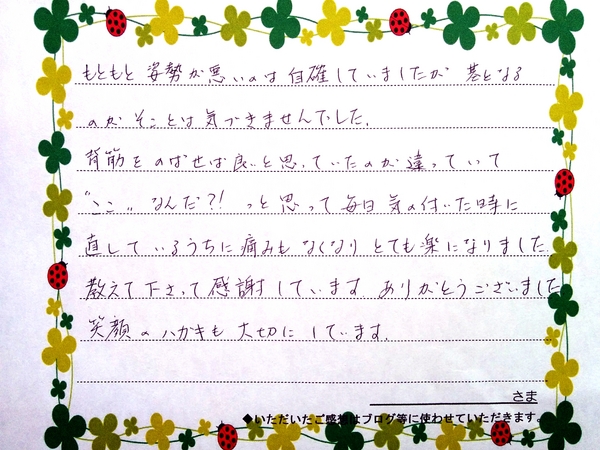 もともと 姿勢が悪いのは 自確していましたが 基となる
のが そことは 気づきませんでした。
背筋を のばせば良いと思っていたのが 違っていて
"ここ" なんだ?! っと 思って 毎日 気の付いた時に
直して いるうちに 痛みも なくなり とても 楽になりました
教えて 下さって 感謝しています ありがとうございました
笑顔の ハガキも 大切に しています。
さま
◆いただいたご感想はブログ等に使わせていただきます。